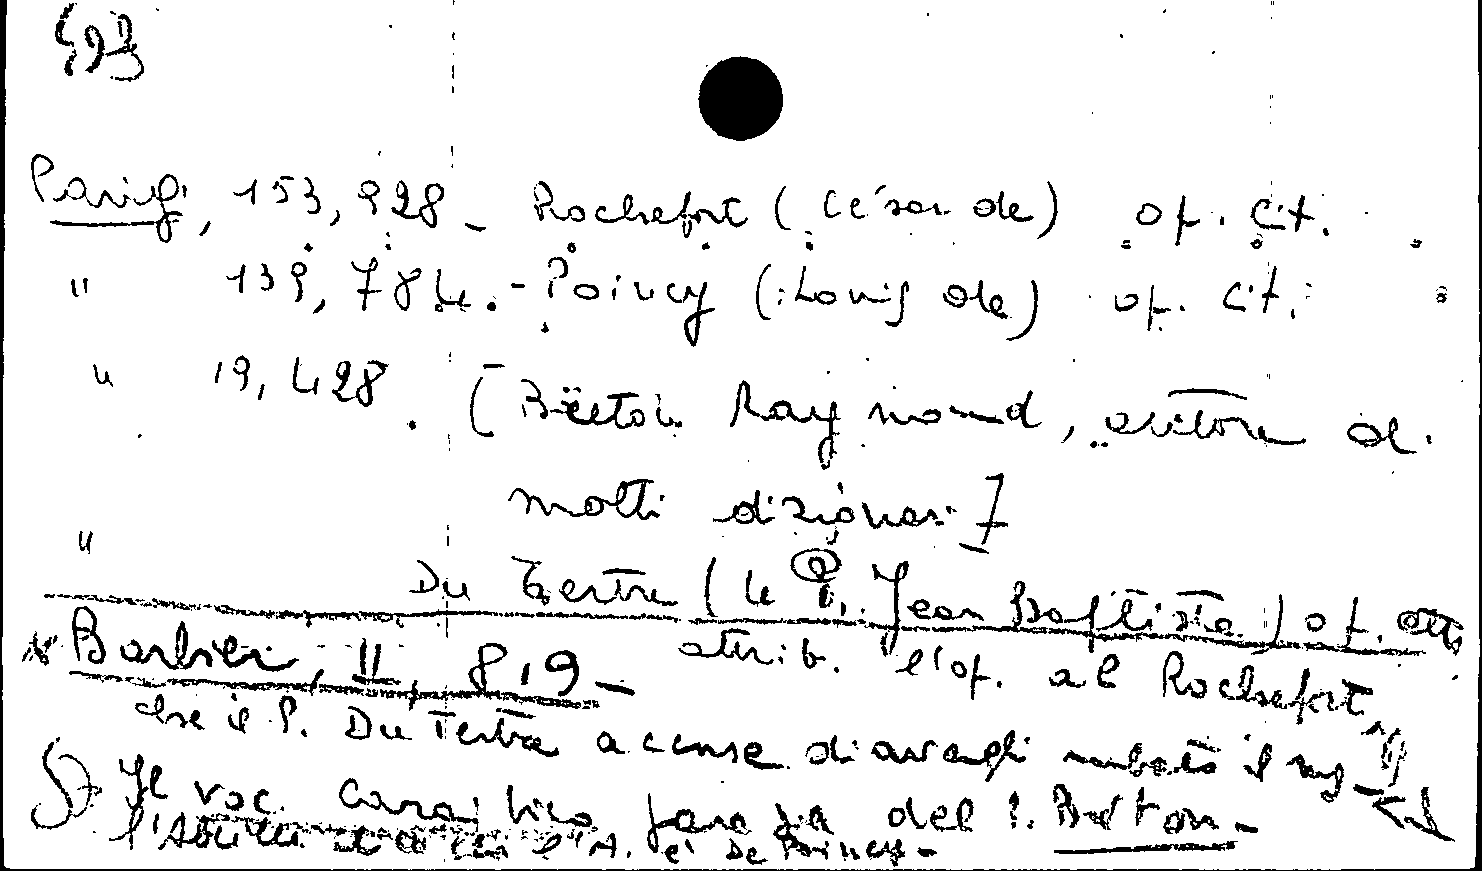 493
Parigi, 153,928 - Rochefort (César de) op. cit.
" 139,784. - Poincy (Louis de) op. cit.
" 19,428. [Breton Raymond, autore di
molti dizionari]
" Du Tertre (le P. Jean Baptiste) op. cit.
* Barbier, II, 819 - attrib. l'op. al Rochefort,
che il P. Du Tertre accuse di avergli rubato il ms
Il voc. caraibico farà da del P. Breton -
l'A. è De Poincy -